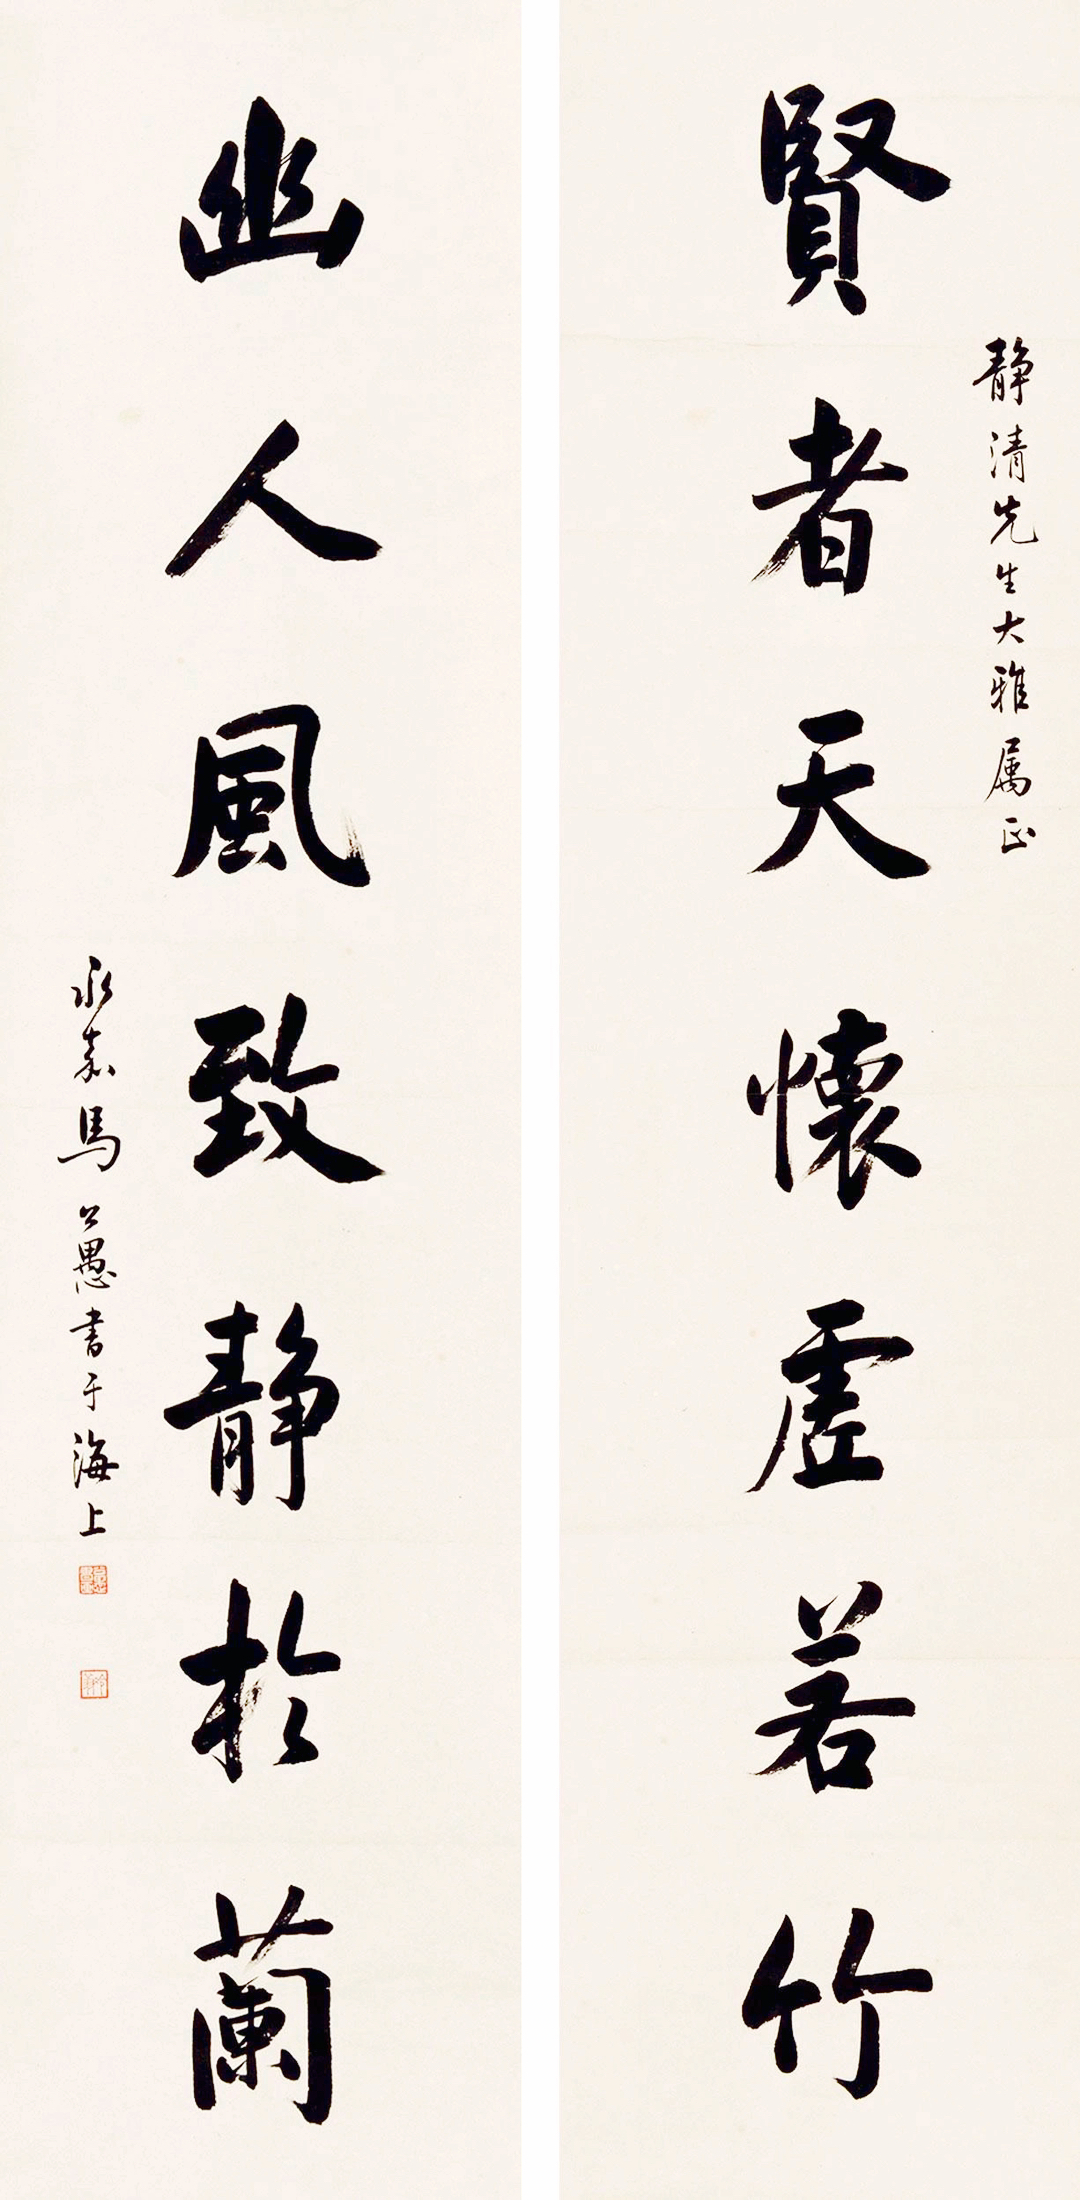 靜清先生大雅属正
賢者天懷虛若竹
幽人風致静於蘭
永嘉馬公愚書于海上